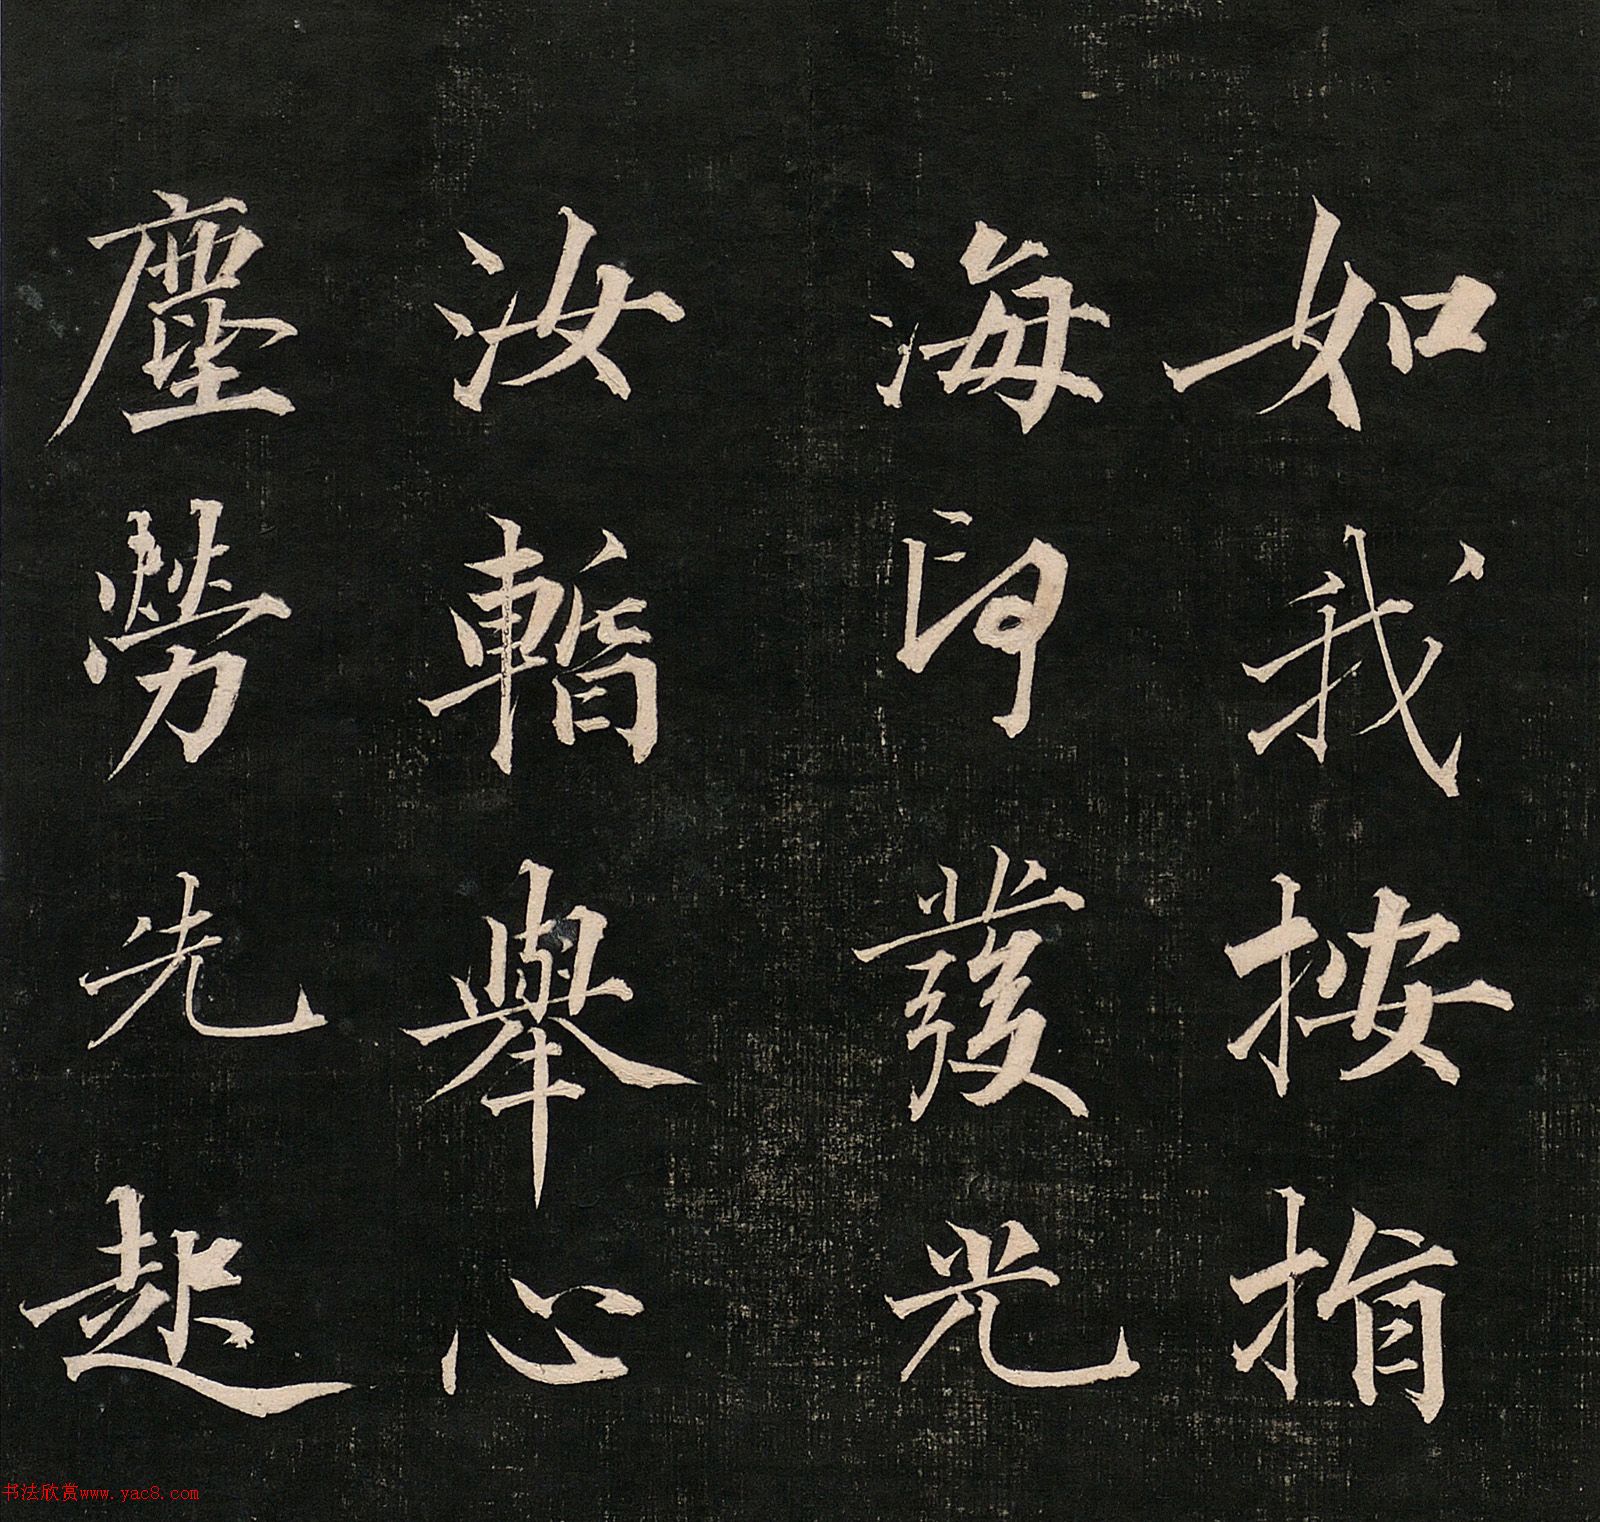 如我按指
海印發光
汝暫舉心
塵勞先起
书法欣赏www.yac8.com